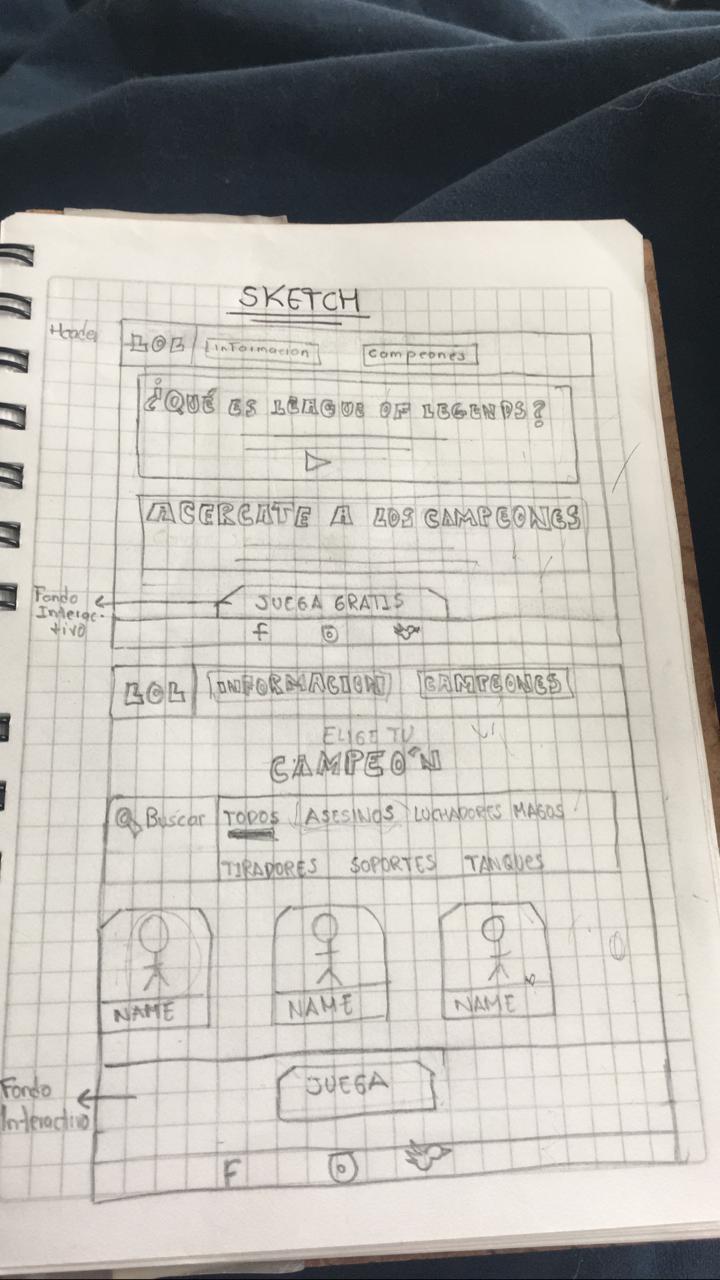 SKETCH
Header
LOL información campeones
¿QUÉ ES LEAGUE OF LEGENDS?
ACERCATE A LOS CAMPEONES
Fondo
Interac-
tivo
JUEGA GRATIS
f
LOL INFORMACION CAMPEONES
ELIGE TU
CAMPEÓN
Buscar TODOS ASESINOS LUCHADORES MAGOS
TIRADORES SOPORTES TANQUES
NAME NAME NAME
Fondo
Interactivo
JUEGA
f